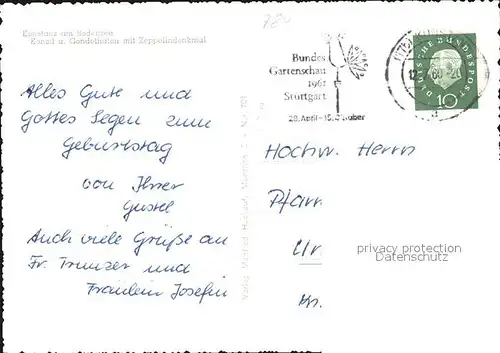 Konstanz am Bodensee
Kanzel u. Gondelhafen mit Zeppelindenkmal
Alles Gute und
Gottes Segen zum
Geburtstag
von Ihrer
Gustel
Auch viele Grüße an
Fr. Trunzer und
Fräulein Josefin
Bundes
Gartenschau
1961
Stuttgart
28. April - 15. Oktober
DEUTSCHE BUNDESPOST
10
Hochw. Herrn
Pfarr.
Ur
privacy protection
Datenschutz